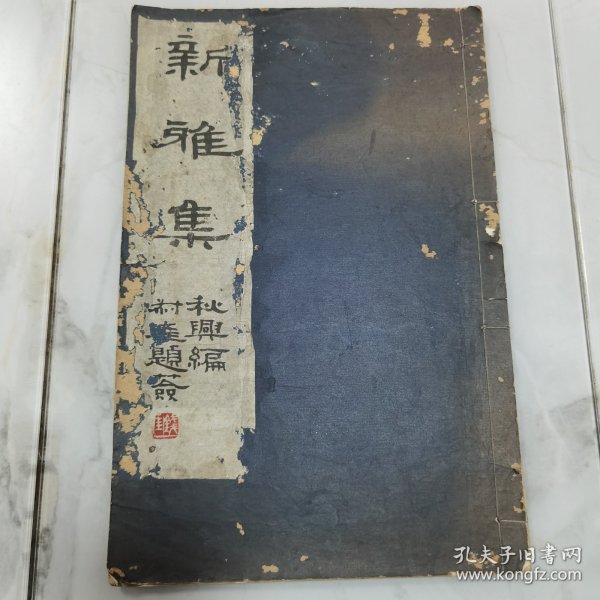 新雅集
秋興編
村隆題簽
孔夫子旧书网
www.kongfz.com